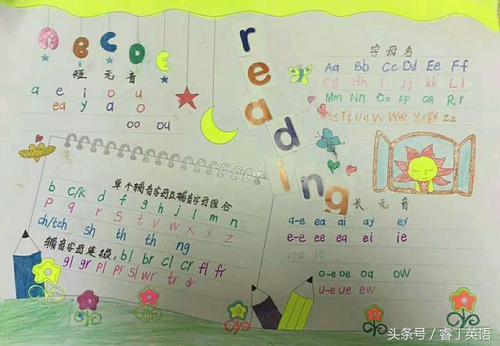 A B C D E
短元音
a e i o u
ea y a o
oo ou
reading
字母名
Aa Bb Cc Dd Ee Ff
Gg Hh Ii Jj kk Ll
Mm Nn Oo Pp Qq Rr
Ss Tt Uu Vv Ww Xx Yy Zz
单个辅音字母及辅音字母组合
b c/k d f g h j l m n
p q r s t v w x y z
ch/tch sh th th ng
辅音字母连缀, bl br cl cr fl fr
gl gr pl pr sl wr tr dr
长元音
a-e ea ai ay ey
e-e ee ea ei ie
i-e ie
o-e oe oa ow
u-e ue ew
头条号／睿丁英语